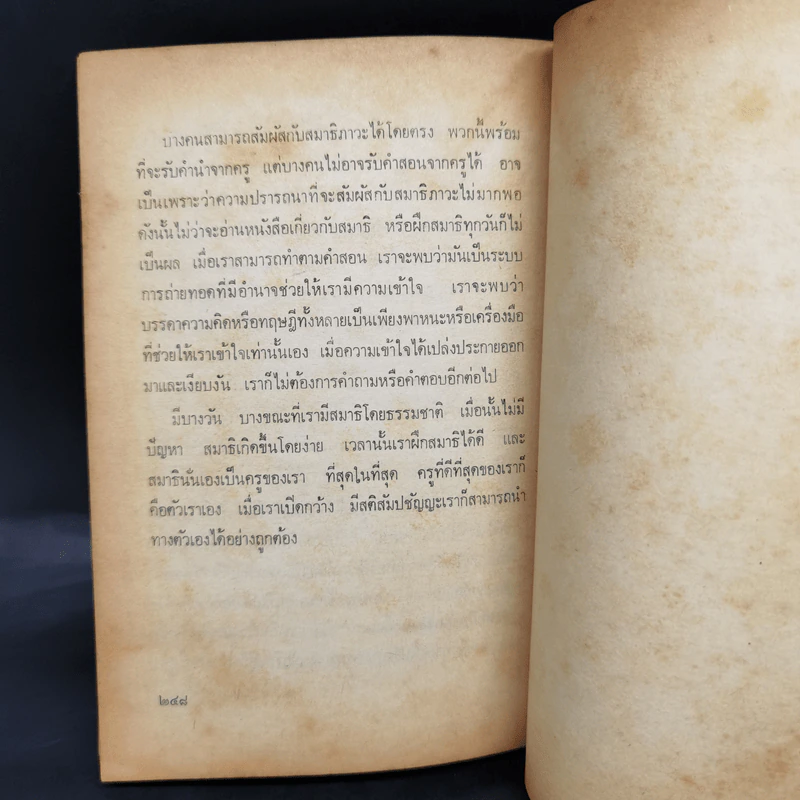 บางคนสามารถสัมผัสกับสมาธิภาวะได้โดยตรง พวกนี้พร้อม
ที่จะรับคำนำจากครู แต่บางคนไม่อาจรับคำสอนจากครูได้ อาจ
เป็นเพราะว่าความปรารถนาที่จะสัมผัสกับสมาธิภาวะไม่มากพอ
ดังนั้นไม่ว่าจะอ่านหนังสือเกี่ยวกับสมาธิ หรือฝึกสมาธิทุกวันก็ไม่
เป็นผล เมื่อเราสามารถทำตามคำสอน เราจะพบว่ามันเป็นระบบ
การถ่ายทอดที่มีอำนาจช่วยให้เรามีความเข้าใจ เราจะพบว่า
บรรดาความคิดหรือทฤษฎีทั้งหลายเป็นเพียงพาหนะหรือเครื่องมือ
ที่ช่วยให้เราเข้าใจเท่านั้นเอง เมื่อความเข้าใจได้เปล่งประกายออก
มาและเงียบงัน เราก็ไม่ต้องการคำถามหรือคำตอบอีกต่อไป
มีบางวัน บางขณะที่เรามีสมาธิโดยธรรมชาติ เมื่อนั้นไม่มี
ปัญหา สมาธิเกิดขึ้นโดยง่าย เวลานั้นเราฝึกสมาธิได้ดี และ
สมาธินั่นเองเป็นครูของเรา ที่สุดในที่สุด ครูที่ดีที่สุดของเราก็
คือตัวเราเอง เมื่อเราเปิดกว้าง มีสติสัมปชัญญะเราก็สามารถนำ
ทางตัวเองได้อย่างถูกต้อง
๒๔๘